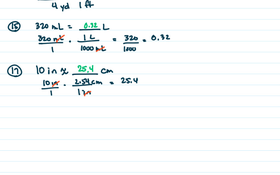 4 yd 1 ft
15 320 mL = 0.32 L
320 mL / 1 · 1 L / 1000 mL = 320 / 1000 = 0.32
17 10 in x 25.4 cm
10 in / 1 · 2.54 cm / 1 in = 25.4